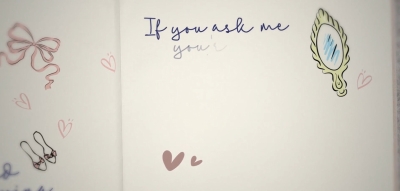 If you ask me
you'